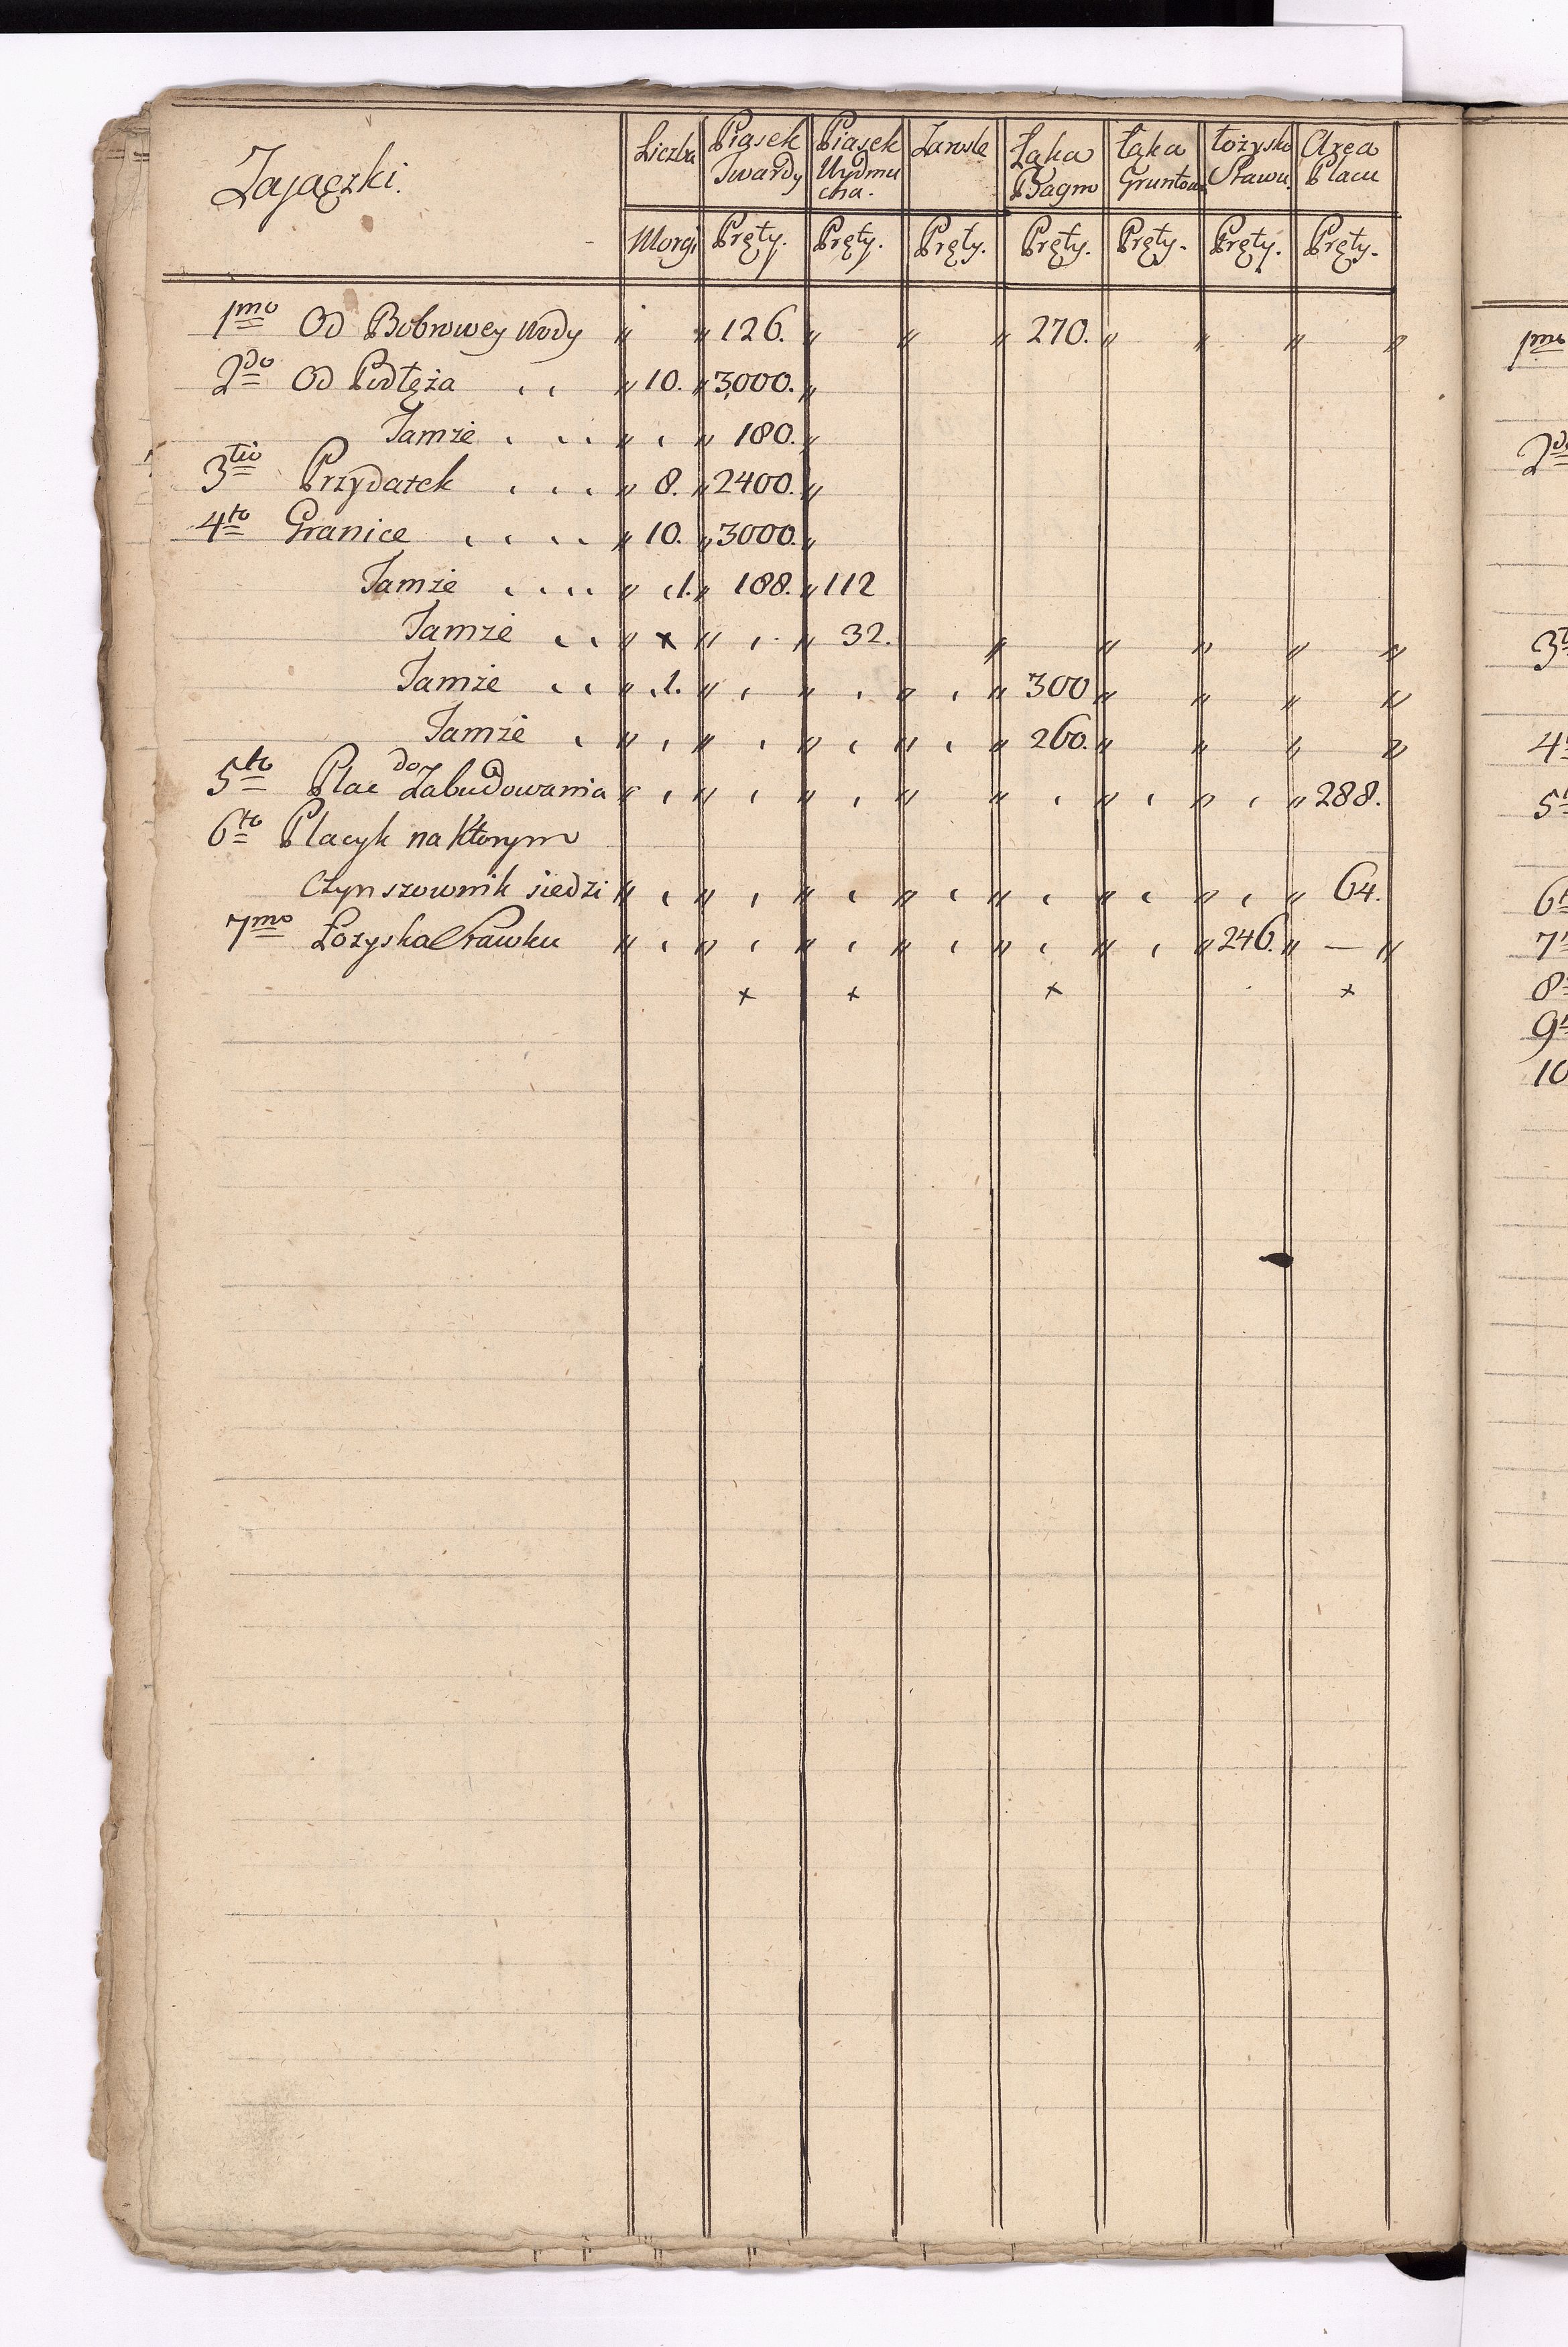 Zajączki.
Liczba Piasek Twardy Piasek Wydmucha. Zarosle Łąka Bagno Łąka Gruntowa Łożysko Stawu. Area Placu
Morgi Pręty. Pręty. Pręty. Pręty. Pręty. Pręty. Pręty.
1mo Od Bobrowey Wody „ „ 126. „ „ „ 270. „ „ „ „
2do Od Podłęża „ 10. „ 3000. „
Tamże „ „ 180. „
3tio Przydatek „ 8. „ 2400. „
4to Granice „ 10. „ 3000. „
Tamże „ 1. „ 188. „ 112
Tamże „ x „ „ 32. „ „ „ „ „
Tamże „ 1. „ „ „ „ 300 „ „ „ „
Tamże „ „ „ „ „ 260. „ „ „ „
5to Plac do Zabudowania „ „ „ „ „ „ „ „ 288.
6to Placyk na Którym
Czynszownik siedzi „ „ „ „ „ „ „ „ 64.
7mo Łozyska Stawku „ „ „ „ „ „ „ 246. „ — „
x x x x
1mo
2do
3t
4t
5t
6t
7
8
9
10